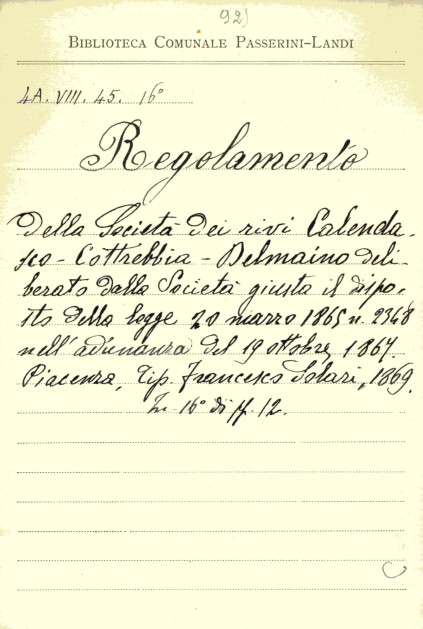 92)
BIBLIOTECA COMUNALE PASSERINI-LANDI
4A. VIII. 45. 16º
Regolamento
Della Società dei rivi Calenda-
sco - Cottrebbia - Delmaino deli-
berato dalla Società giusta il dispo-
sto della legge 20 marzo 1865 n. 2348
nell'adunanza del 19 ottobre 1867
Piacenza, Tip. Francesco Solari, 1869.
In 16º di pp. 12.